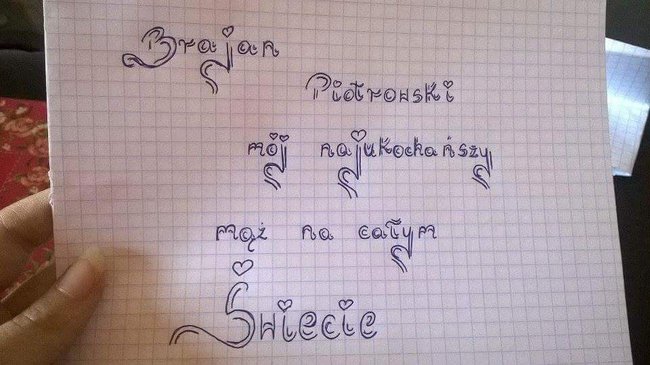 Brajan
Piotrowski
mój najukochańszy
mąż na całym
Świecie